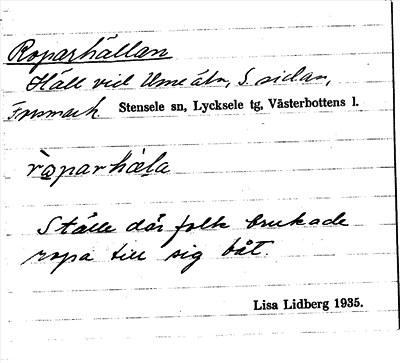 Roparhällan
Häll vid Ume älv, S. sidan,
Stensele sn, Lycksele tg, Västerbottens l.
Ställe där folk brukade
ropa till sig båt.
Lisa Lidberg 1935.